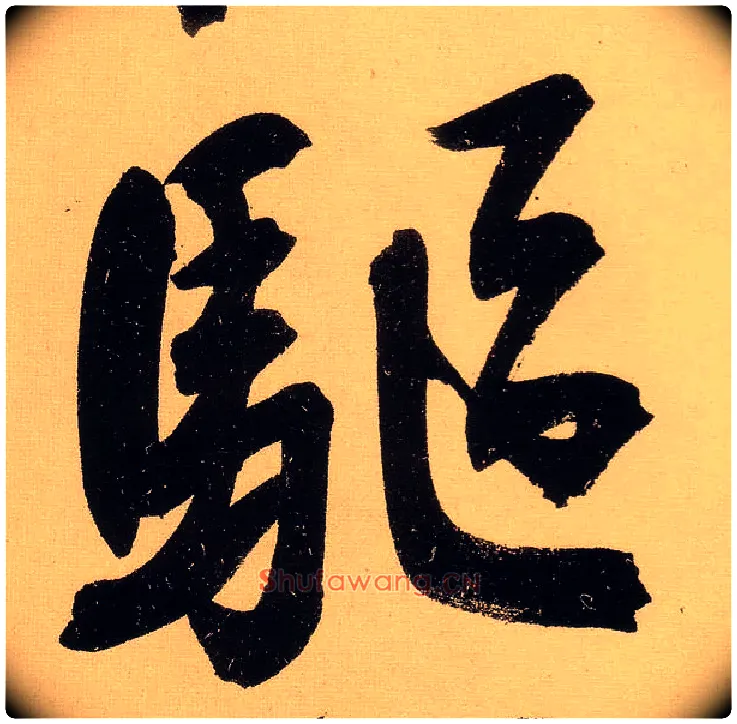 驅
Shufawang.CN